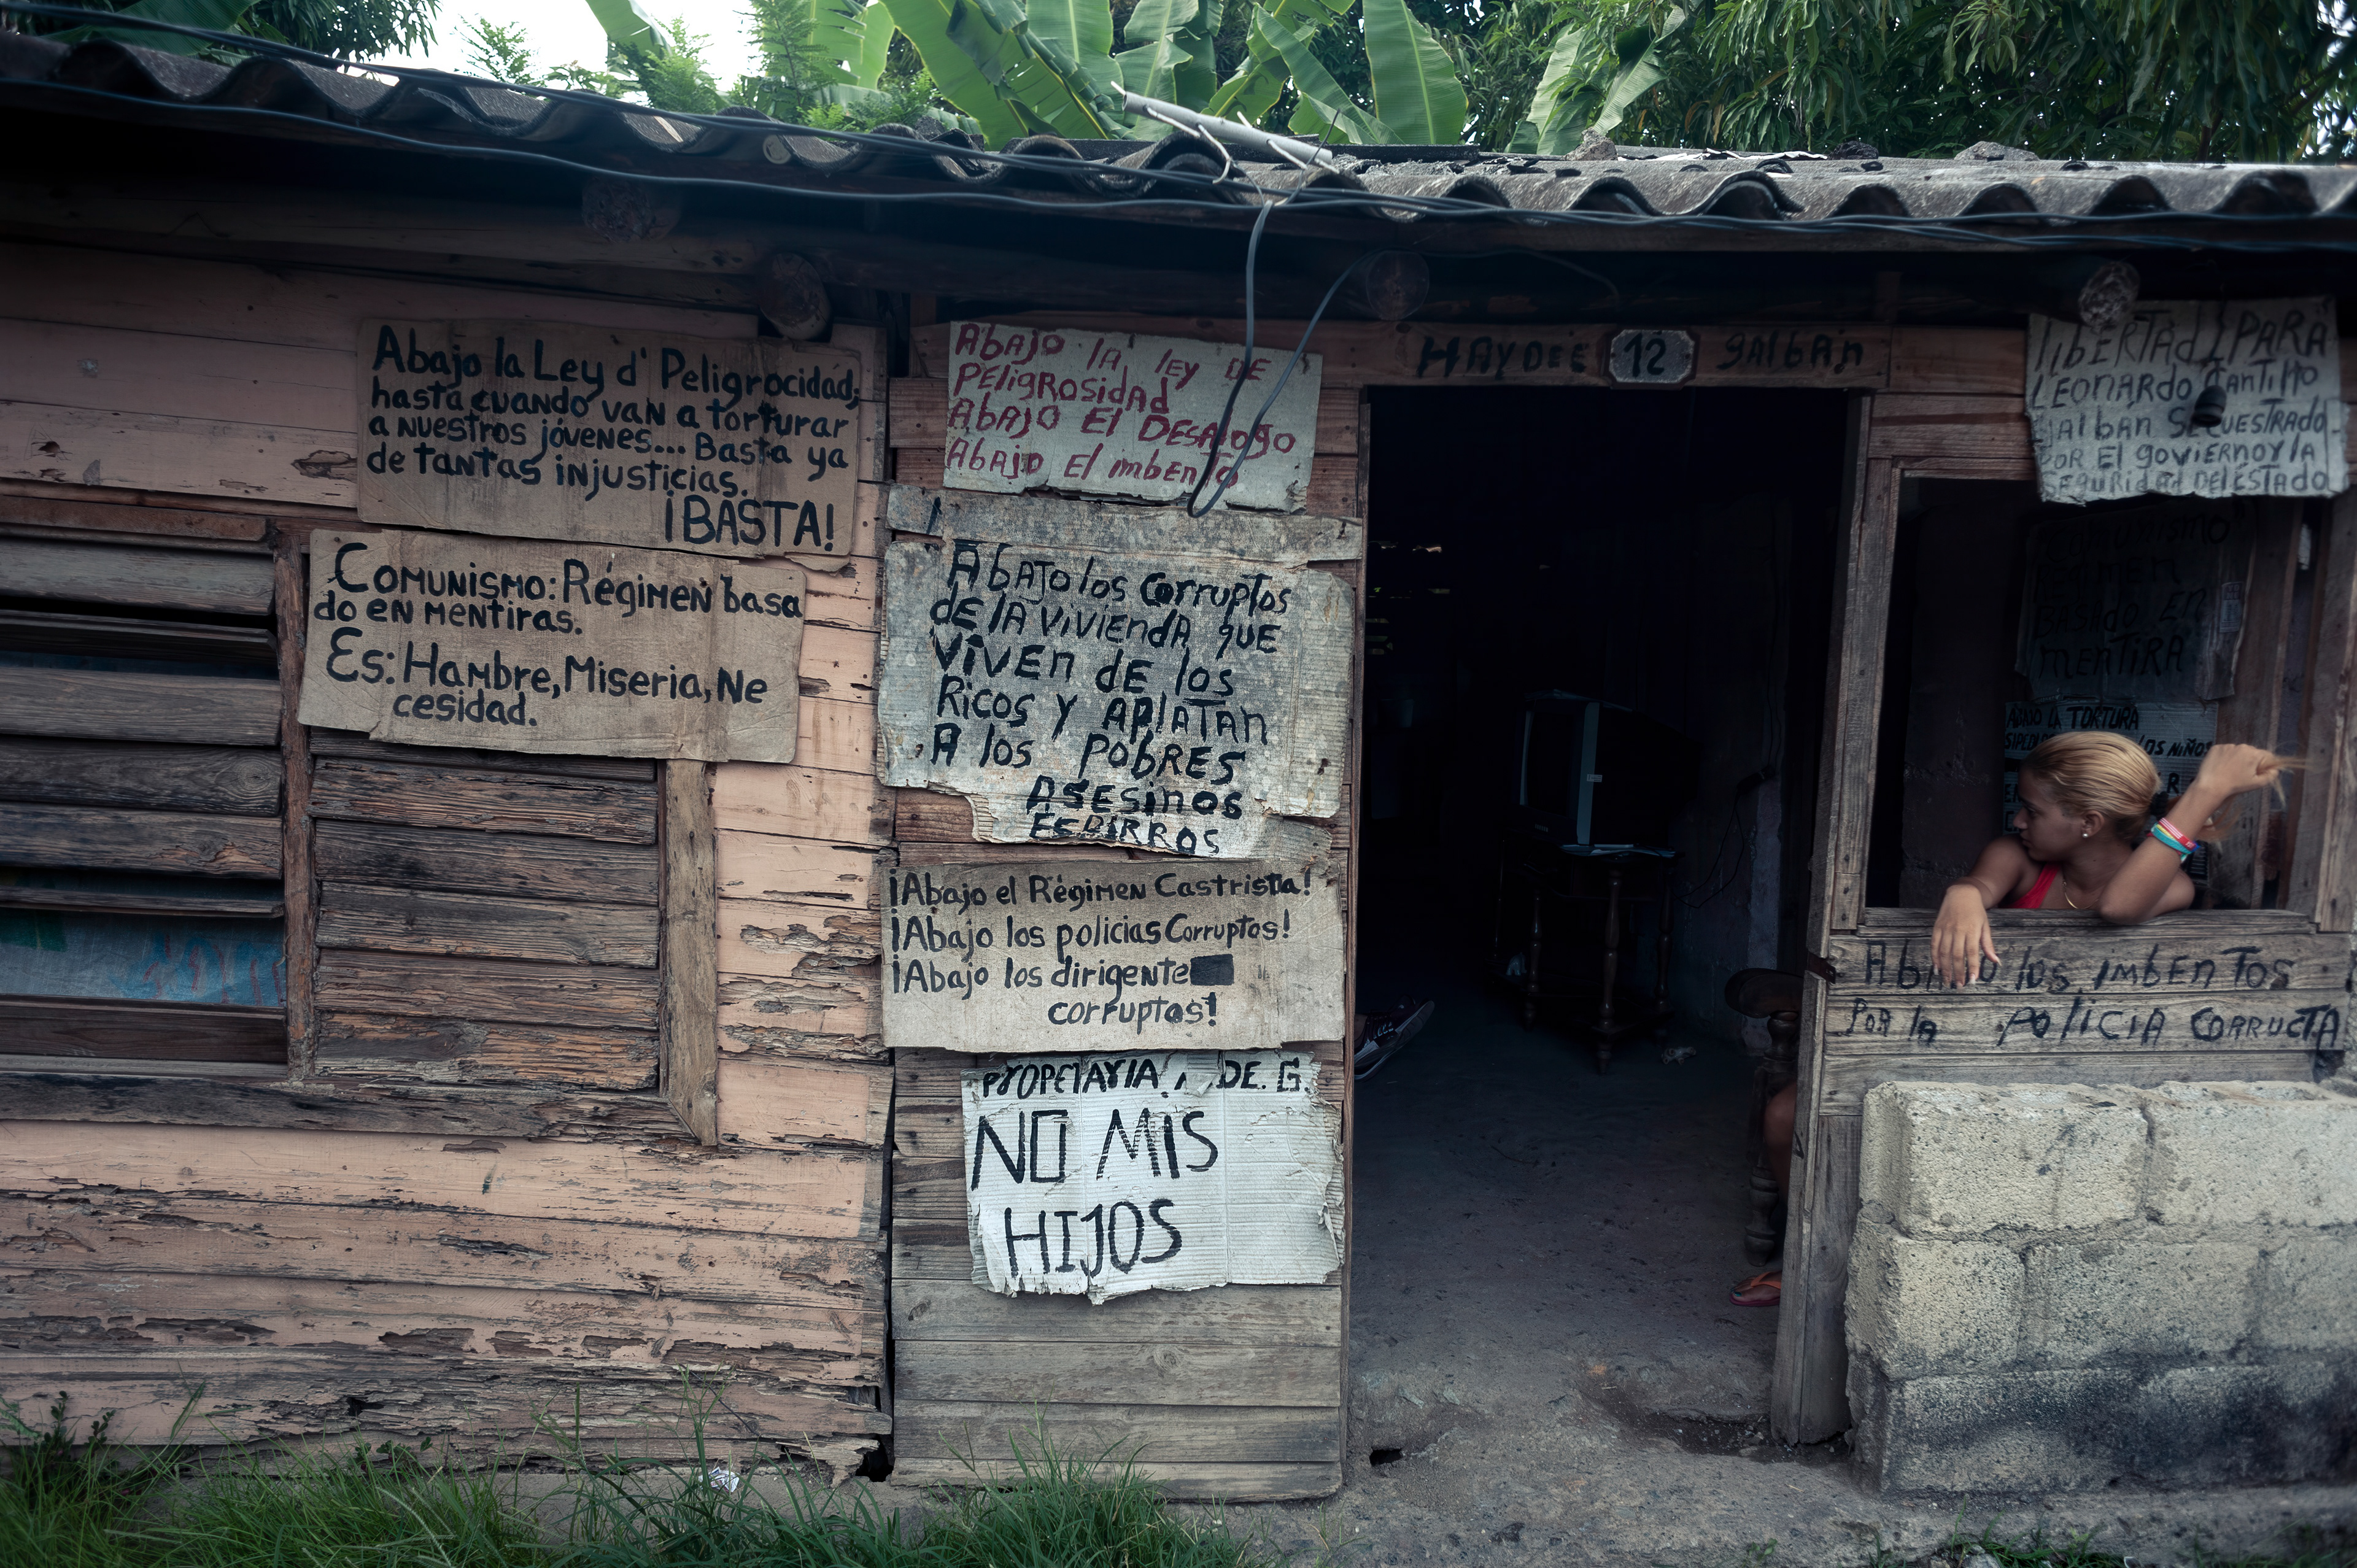 Abajo la Ley d' Peligrocidad;
hasta cuando van a torturar
a nuestros jóvenes... Basta ya
de tantas injusticias.
¡BASTA!
Comunismo: Régimen basa
do en mentiras.
Es: Hambre, Miseria, Ne
cesidad.
Abajo la ley de
Peligrosidad
Abajo El Desalogo
Abajo El imbento
Abajo los corruptos
de la vivienda que
viven de los
Ricos y aplatan
A los pobres
Asesinos
¡Abajo el Régimen Castrista!
¡Abajo los policias Corruptos!
¡Abajo los dirigente
corruptos!
PROPETARIA DE. G.
NO MIS
HIJOS
HAYDEE 12 GALBAN
libERTAd PARA
LEONARDO CANTIllO
GAlbAn SECUESTRADO
POR El goviERno y lA
SEguRidAd DEl ESTADO
Comunismo
REgimEN
BASADO En
mEnTiRA
ABAJO LA TORTURA
los niños
AbAJO los imbEnTos
PoR lA POliCiA CoRRuCTA